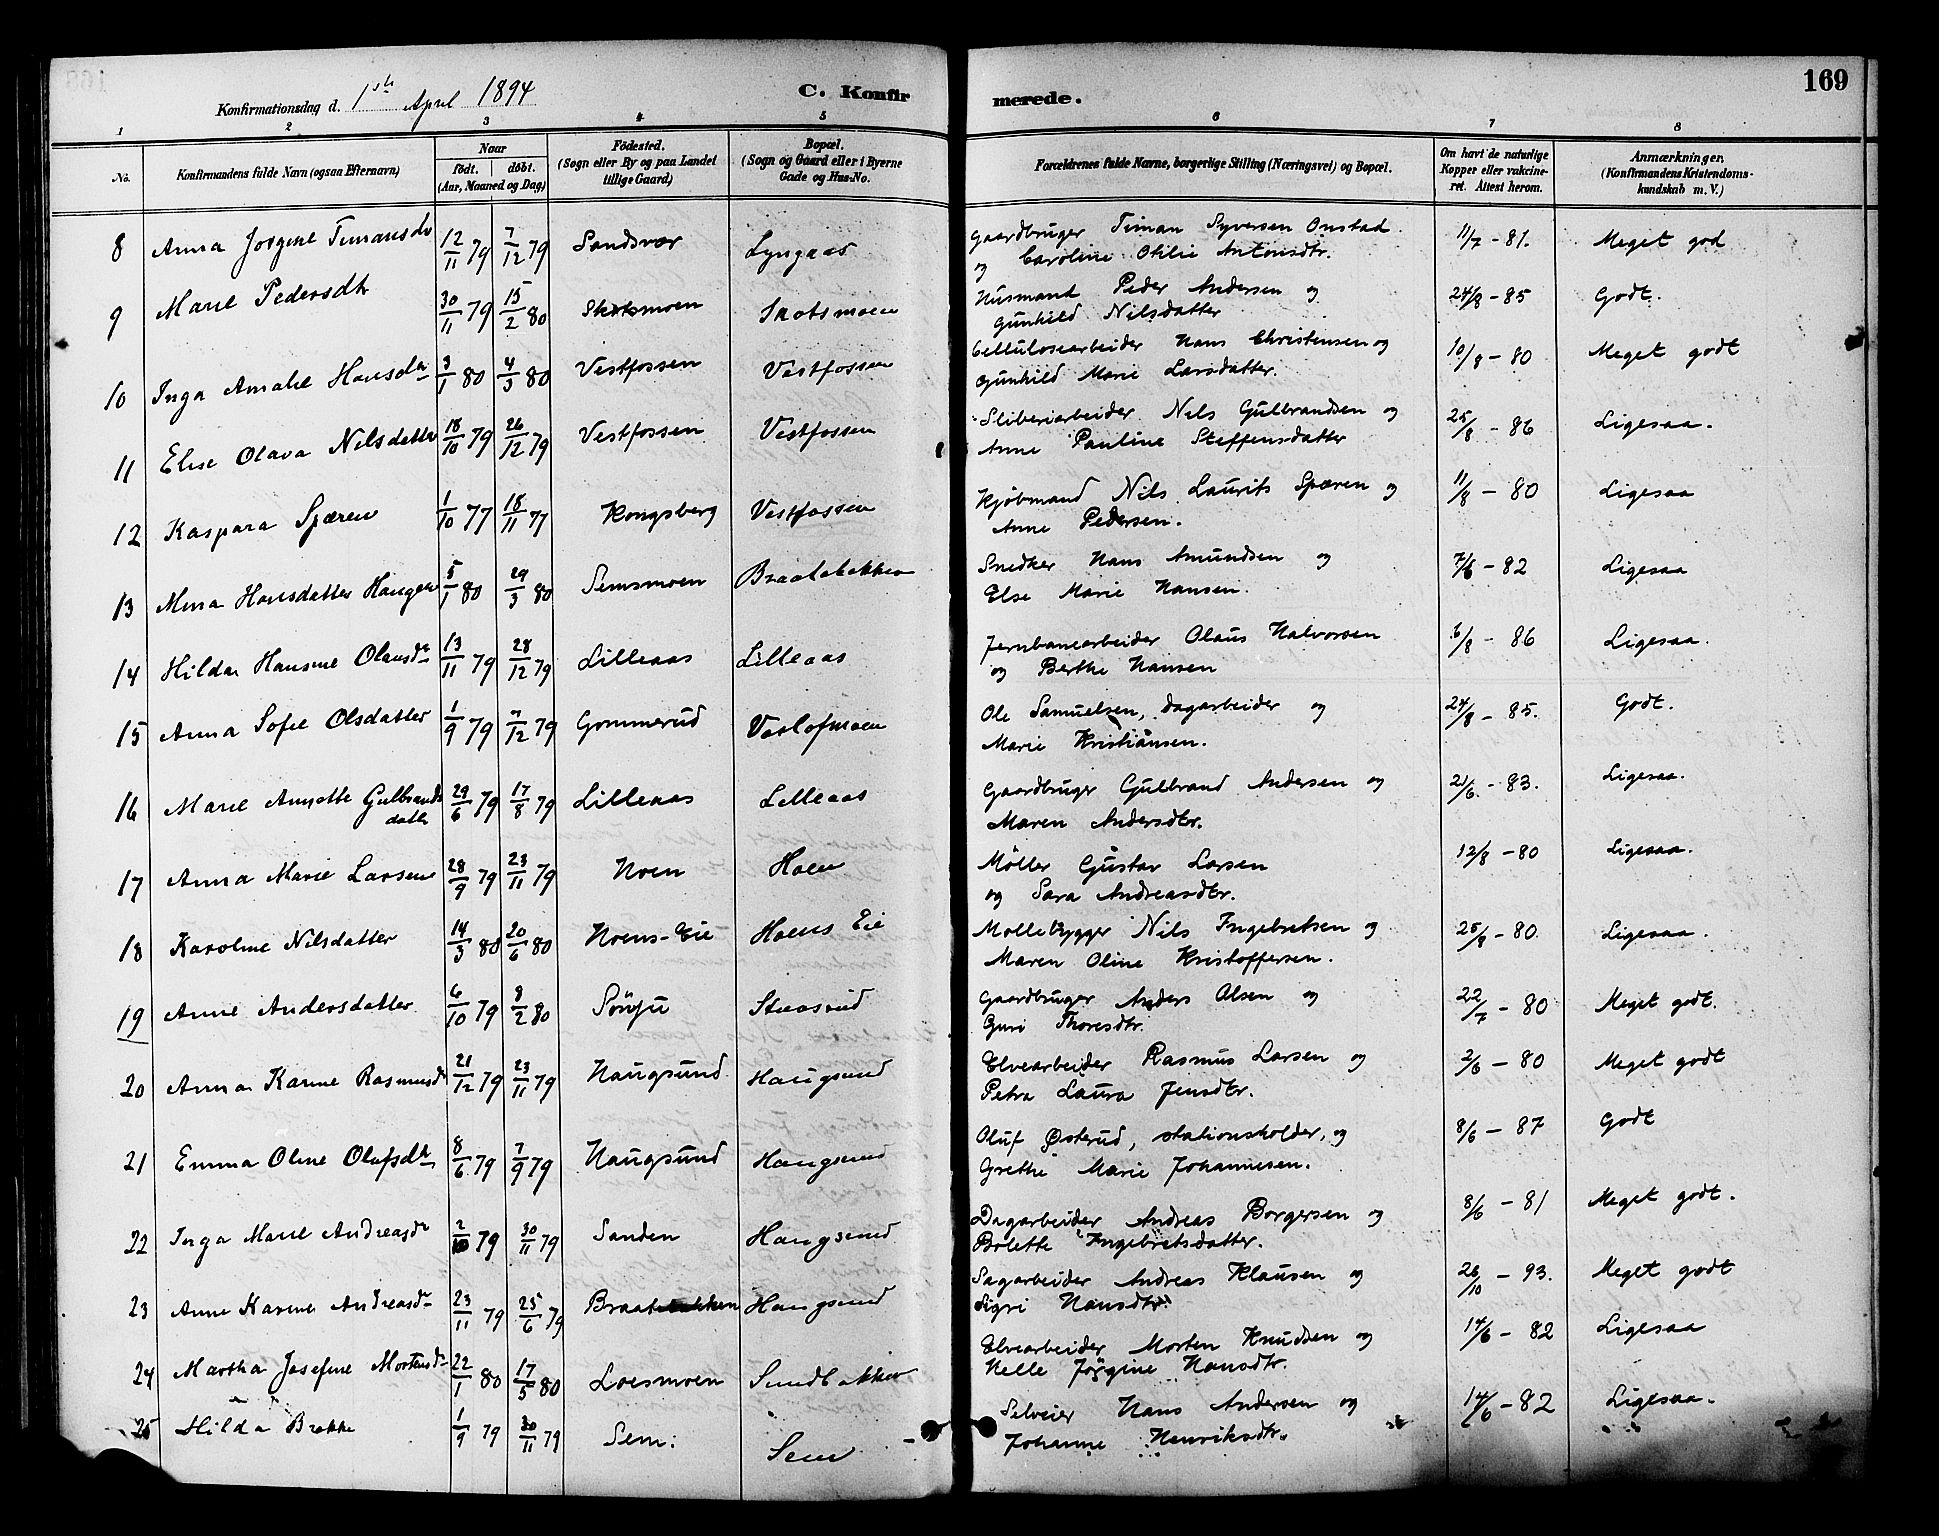 Konfirmationsdag d. 1ste April 1894
C. Konfirmerede.
169
1 2 3 4 5 6 7 8
No.
Konfirmandens fulde Navn (ogsaa Efternavn)
Naar
født. døbt.
(Aar, Maaned og Dag)
Fødested.
(Sogn eller By og paa Landet
tillige Gaard)
Bopæl.
(Sogn og Gaard eller i Byerne
Gade og Hus-No.
Forældrenes fulde Navne, borgerlige Stilling (Næringsvei) og Bopæl.
Om havt de naturlige
Kopper eller vakcine-
ret. Attest herom.
Anmærkninger.
(Konfirmandens Kristendoms-
kundskab m. V.)
8 Anna Jørgine Timansdtr 12/11 79 7/12 79 Sandsvær Lyngaas Gaardbruger Timan Syversen Onstad 11/7 - 81. Meget god
og Caroline Otilie Antonsdtr.
9 Marie Pedersdtr 30/11 79 15/2 80 Skotsmoen Skotsmoen Husmand Peder Andersen og 24/8 - 85 Godt.
Gunhild Nilsdatter
10 Inga Amalie Hansdtr 3/1 80 4/3 80 Vestfossen Vestfossen Cellulosearbeider Hans Christensen og 10/8 - 80 Meget godt
Gunhild Marie Larsdatter.
11 Elise Olava Nilsdatter 18/10 79 26/12 79 Vestfossen Vestfossen Sliberiarbeider Nils Gulbrandsen og 25/8 - 86 Ligesaa.
Anne Pauline Steffensdatter
12 Kaspara Spæren 1/10 77 18/11 77 Kongsberg Vestfossen Kjøbmand Nils Laurits Spæren og 11/8 - 80 Ligesaa
Anne Pedersen.
13 Mina Hansdatter Haugen 5/1 80 29/3 80 Semsmoen Braatabakken Snedker Hans Amundsen og 7/6 - 82 Ligesaa
Else Marie Hansen.
14 Hilda Hansine Olausdtr 13/11 79 28/12 79 Lilleaas Lilleaas Jernbanearbeider Olaus Halvorsen 6/8 - 86 Ligesaa.
og Berthe Hansen
15 Anna Sofie Olsdatter 1/9 79 7/12 79 Gommerud Veslofmoen Ole Samuelsen, dagarbeider og 24/8 - 85. Godt.
Marie Kristiansen.
16 Marie Annette Gulbrands 29/6 79 17/8 79 Lilleaas Lilleaas Gaardbruger Gulbrand Andersen og 21/6 - 83. Ligesaa.
datter Maren Andersdtr.
17 Anna Marie Larsen 28/9 79 23/11 79 Hoen Hoen Møller Gustav Larsen 12/8 - 80 Ligesaa.
og Sara Andreasdtr.
18 Karoline Nilsdatter 14/3 80 20/6 80 Hoens-Eie Hoens Eie Møllebygger Nils Ingebretsen og 25/8 - 80. Ligesaa.
Maren Oline Kristoffersen.
19 Anne Andersdatter 6/10 79 8/2 80 Staasrud Gaardbruger Anders Olsen og 22/7 - 80 Meget godt.
Guri Thoresdtr.
20 Anna Karine Rasmusdtr 21/12 79 23/11 79 Haugsund Haugsund Elvearbeider Rasmus Larsen og 2/6 - 80 Meget godt
Petra Laura Jensdtr.
21 Emma Oline Olafsdtr 8/6 79 7/9 79 Haugsund Haugsund Oluf Østerud, stationsholder, og 8/6 - 87 Godt
Grethe Marie Johannesen.
22 Inga Marie Andreasdtr 2/10 79 30/11 79 Sanden Haugsund Dagarbeider Andreas Borgersen og 8/6 - 81 Meget godt.
Bolette Ingebretsdatter.
23 Anne Karine Andreasdtr 23/11 79 25/6 79 Braatabakken Haugsund Sagarbeider Andreas Klausen og 26/10 - 93. Meget godt
Sigri Hansdtr.
24 Martha Josefine Mortensdtr 22/1 80 17/5 80 Loesmoen Sundbakken Elvearbeider Morten Knudsen og 14/6 - 82 Ligesaa
Helle Jørgine Hansdtr.
25 Hilda Brekke 1/9 79 30/11 79 Sem. Sem Selveier Hans Andersen og 14/6 - 82 Ligesaa.
Johanne Henriksdtr.